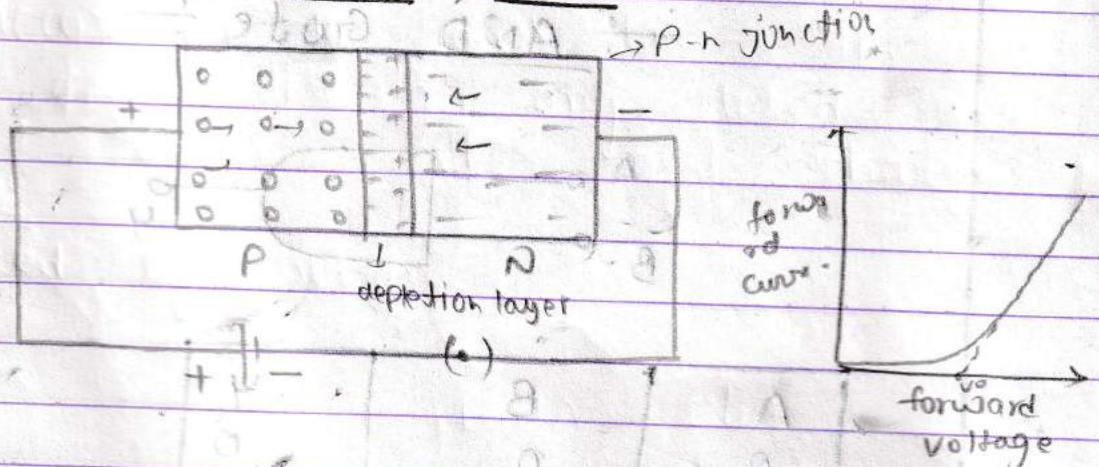 → P-n junction
+
−
P
N
depletion layer
+ −
forwa
rd
curr.
v₀
forward
voltage